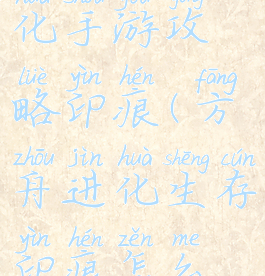 huà shǒu yóu gōng
化手游攻
lüè yìn hén fāng
略印痕(方
zhōu jìn huà shēng cún
舟进化生存
yìn hén zěn me
印痕怎么